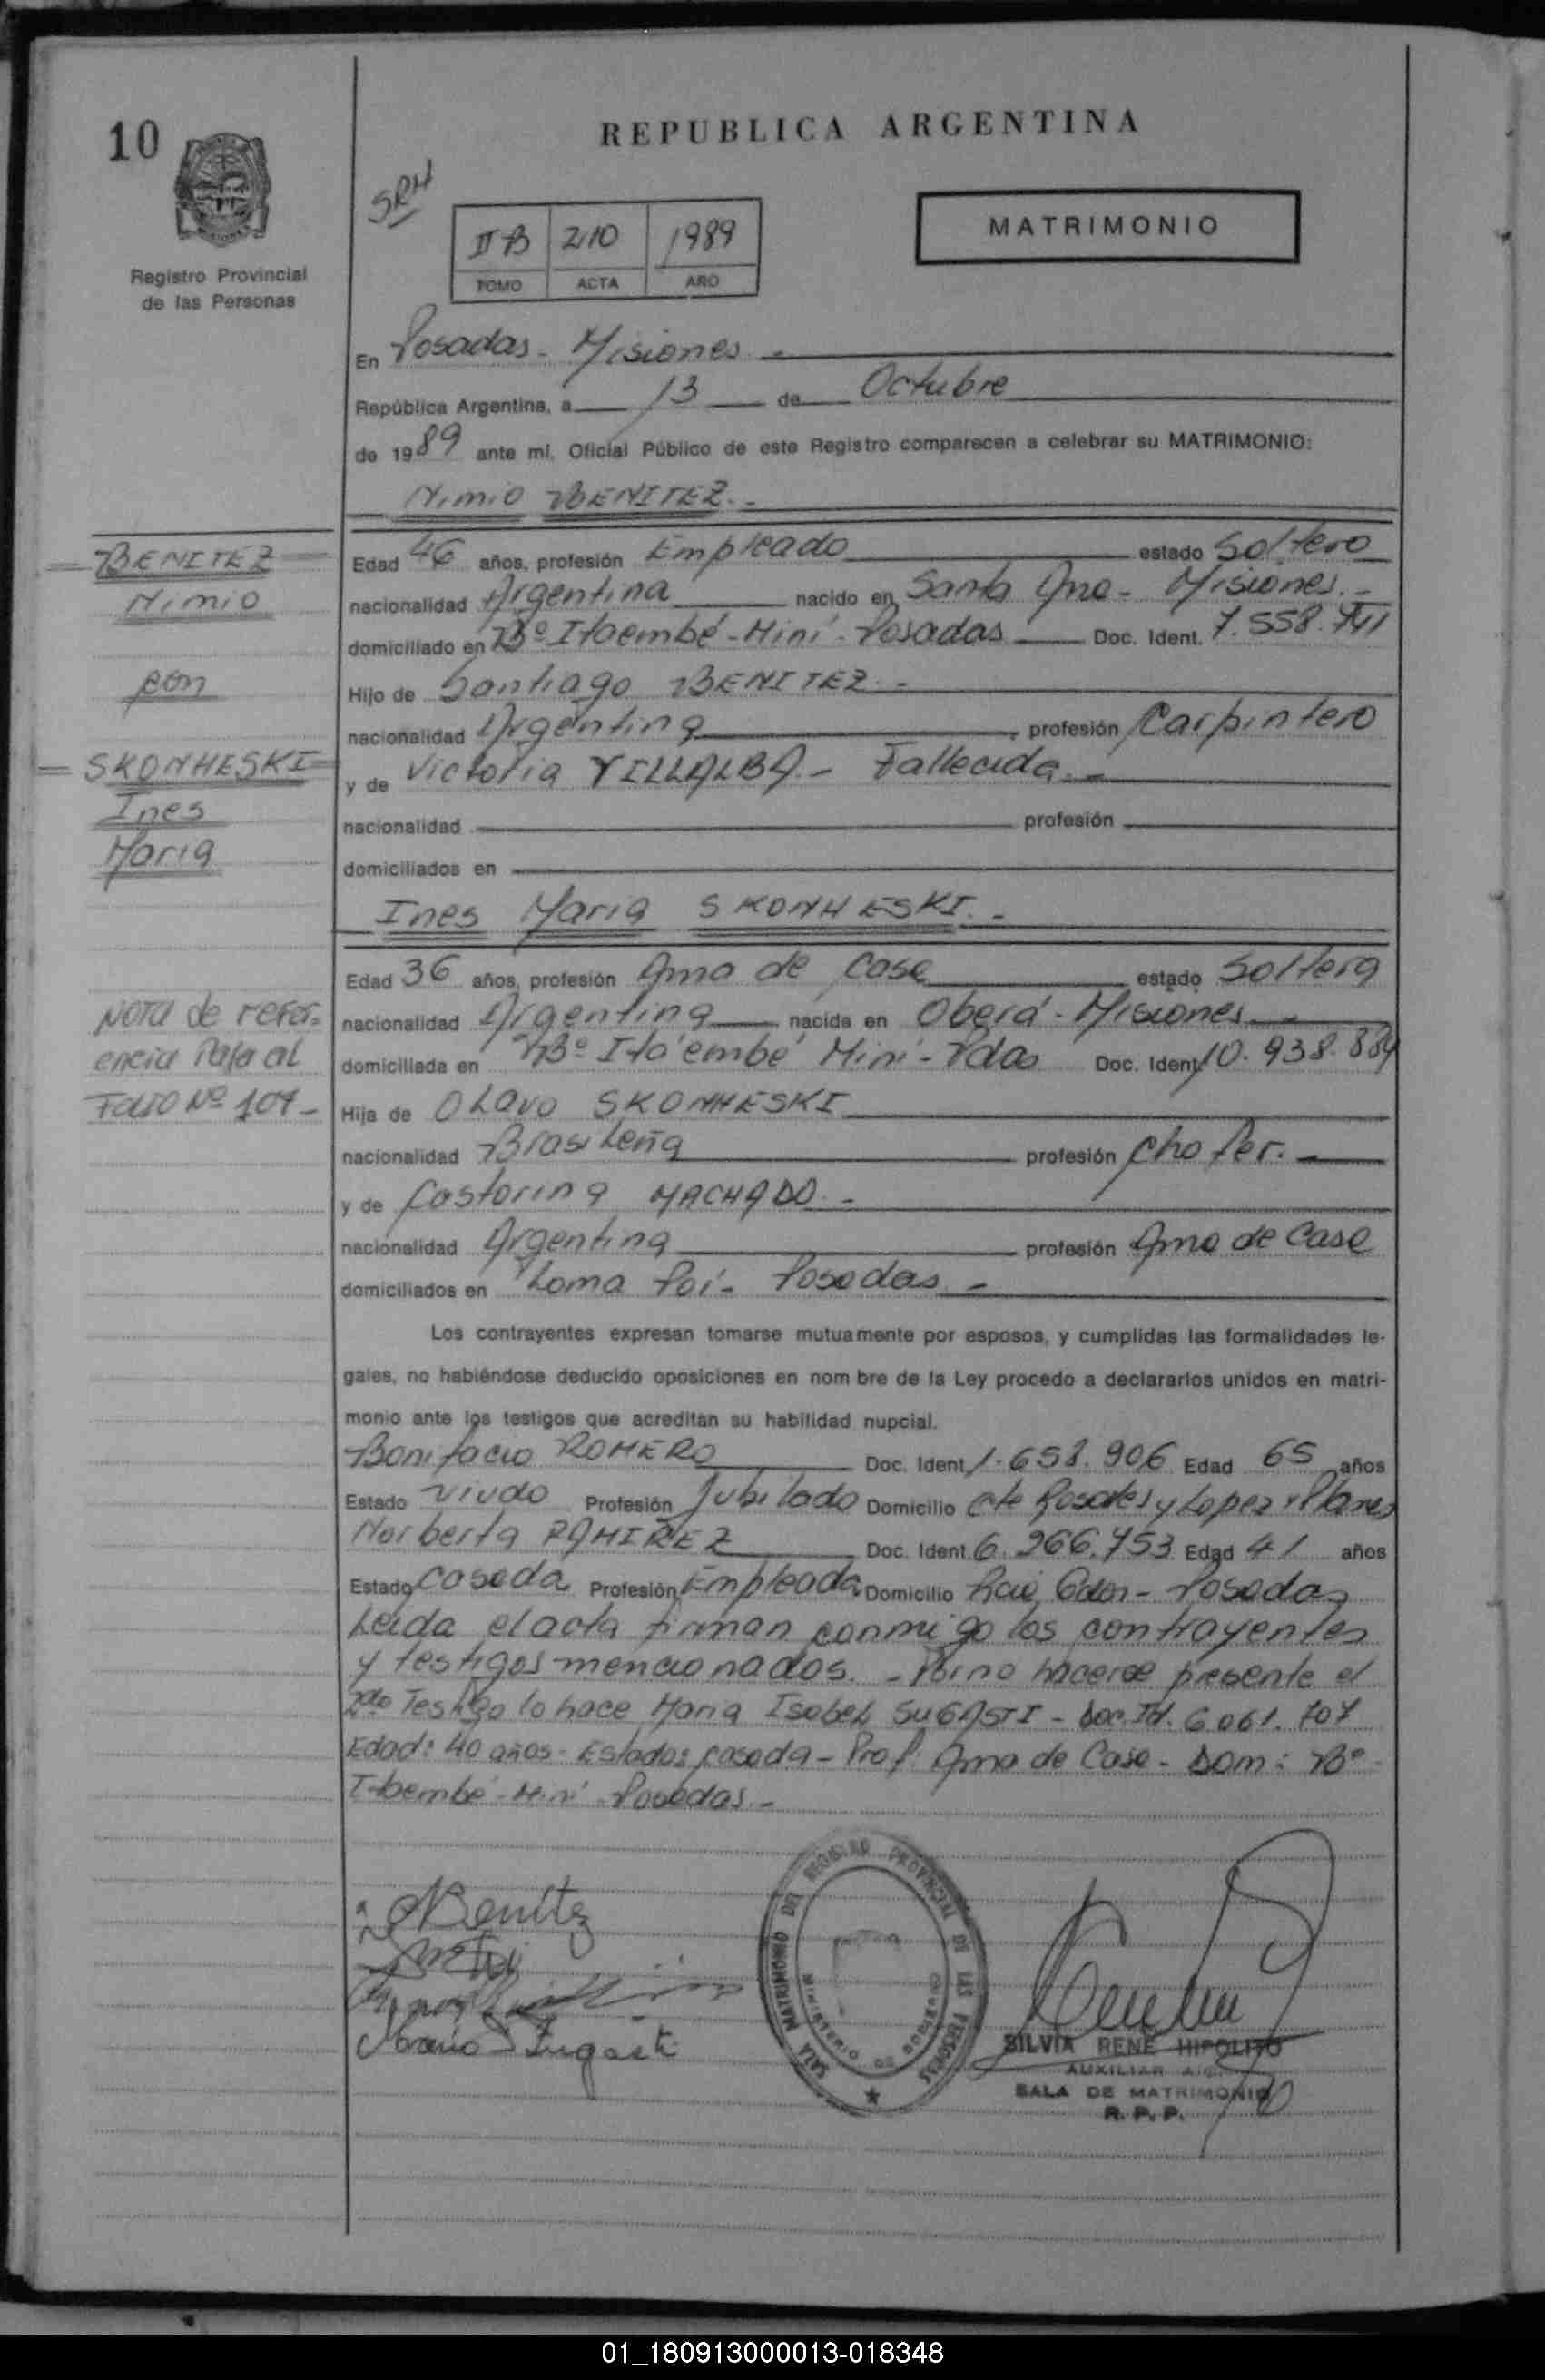 10
REPUBLICA ARGENTINA
SRH
MATRIMONIO
II B 210 1989
TOMO ACTA AÑO
Registro Provincial
de las Personas
En Posadas - Misiones -
República Argentina, a 13 de Octubre
de 1989 ante mi, Oficial Público de este Registro comparecen a celebrar su MATRIMONIO:
Nimio BENITEZ.-
BENITEZ
Nimio
con
SKONHESKI
Ines
Maria
Edad 46 años, profesión Empleado estado Soltero
nacionalidad Argentina nacido en Santa Ana - Misiones.-
domiciliado en Bº Itaembé-Miní-Posadas Doc. Ident. 7.558.741
Hijo de Santiago BENITEZ.-
nacionalidad Argentina, profesión Carpintero
y de Victoria VILLALBA.- Fallecida.-
nacionalidad profesión
domiciliados en
Ines Maria SKONHESKI.-
Edad 36 años, profesión Ama de Casa estado Soltera
nacionalidad Argentina nacida en Oberá - Misiones.-
domiciliada en Bº Itá embé Miní - Pdas Doc. Ident. 10.938.884
Nota de refer-
encia Pasa al
Folio Nº 107-
Hija de Olavo SKONHESKI
nacionalidad Brasileña profesión Chofer.-
y de Castorina MACHADO.-
nacionalidad Argentina profesión Ama de Casa
domiciliados en Loma Poí - Posadas.-
Los contrayentes expresan tomarse mutuamente por esposos, y cumplidas las formalidades le-
gales, no habiéndose deducido oposiciones en nom bre de la Ley procedo a declararlos unidos en matri-
monio ante los testigos que acreditan su habilidad nupcial.
Bonifacio ROMERO Doc. Ident. 1.658.906 Edad 65 años
Estado Viudo Profesión Jubilado Domicilio Cte Rosales y Lopez y Planes
Norberta RAMIREZ Doc. Ident. 6.266.753 Edad 41 años
Estado Casada Profesión Empleada Domicilio Posadas
Leida el acta firman conmigo los contrayentes
y testigos mencionados.- Por no hacerse presente el
2do Testigo lo hace Maria Isabel SUGASTI - Doc. Id. 6.061.707
Edad: 40 años - Estado: casada - Prof: Ama de Casa - Dom: Bº
Itaembé-Miní-Posadas.-
Benítez
Maria I Sugasti
SALA MATRIMONIO DEL REGISTRO PROVINCIAL DE LAS PERSONAS
MINISTERIO DE GOBIERNO
SILVIA RENE HIPOLITO
AUXILIAR
SALA DE MATRIMONIO
R. P. P.
01_180913000013-018348